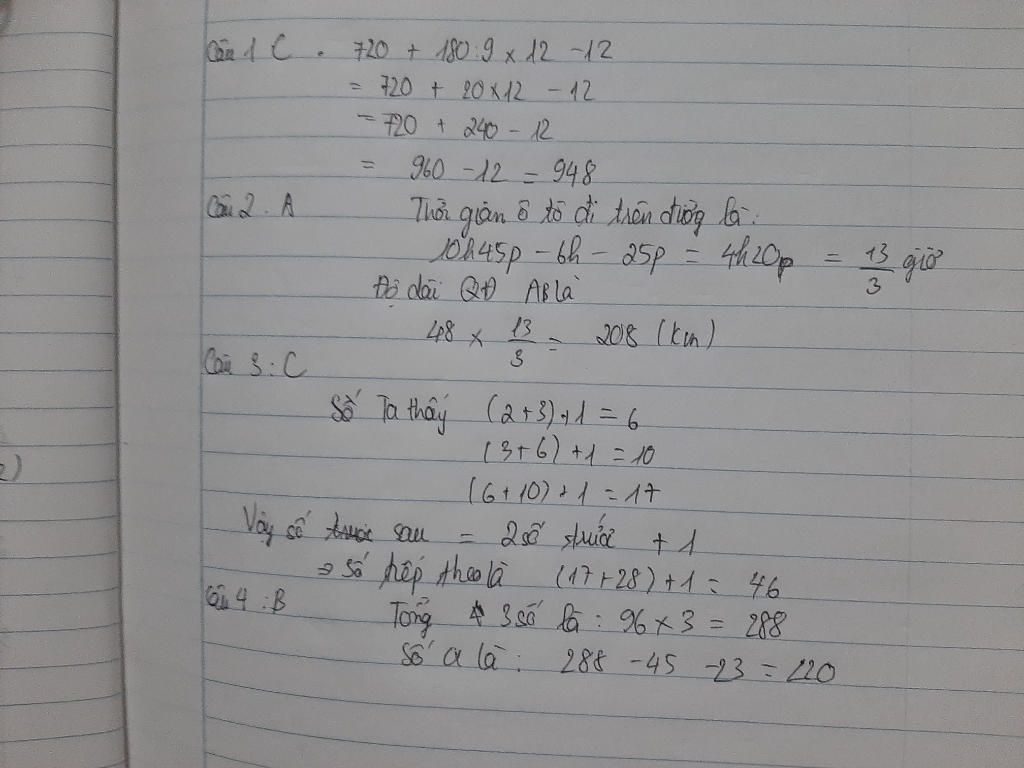 Câu 1 C. 720 + 180:9 x 12 - 12
= 720 + 20x12 - 12
= 720 + 240 - 12
= 960 - 12 = 948
Câu 2. A Thời gian ô tô đi trên đường là:
10h45p - 6h - 25p = 4h20p = 13/3 giờ
Độ dài QĐ AB là
48 x 13/3 = 208 (km)
Câu 3: C
Số Ta thấy (2+3)+1 = 6
(3+6)+1 = 10
(6+10)+1 = 17
2)
Vậy số trước sau = 2 số trước + 1
⇒ Số tiếp theo là (17+28)+1 = 46
Câu 4: B Tổng 3 số là: 96 x 3 = 288
Số a là: 288 - 45 - 23 = 220